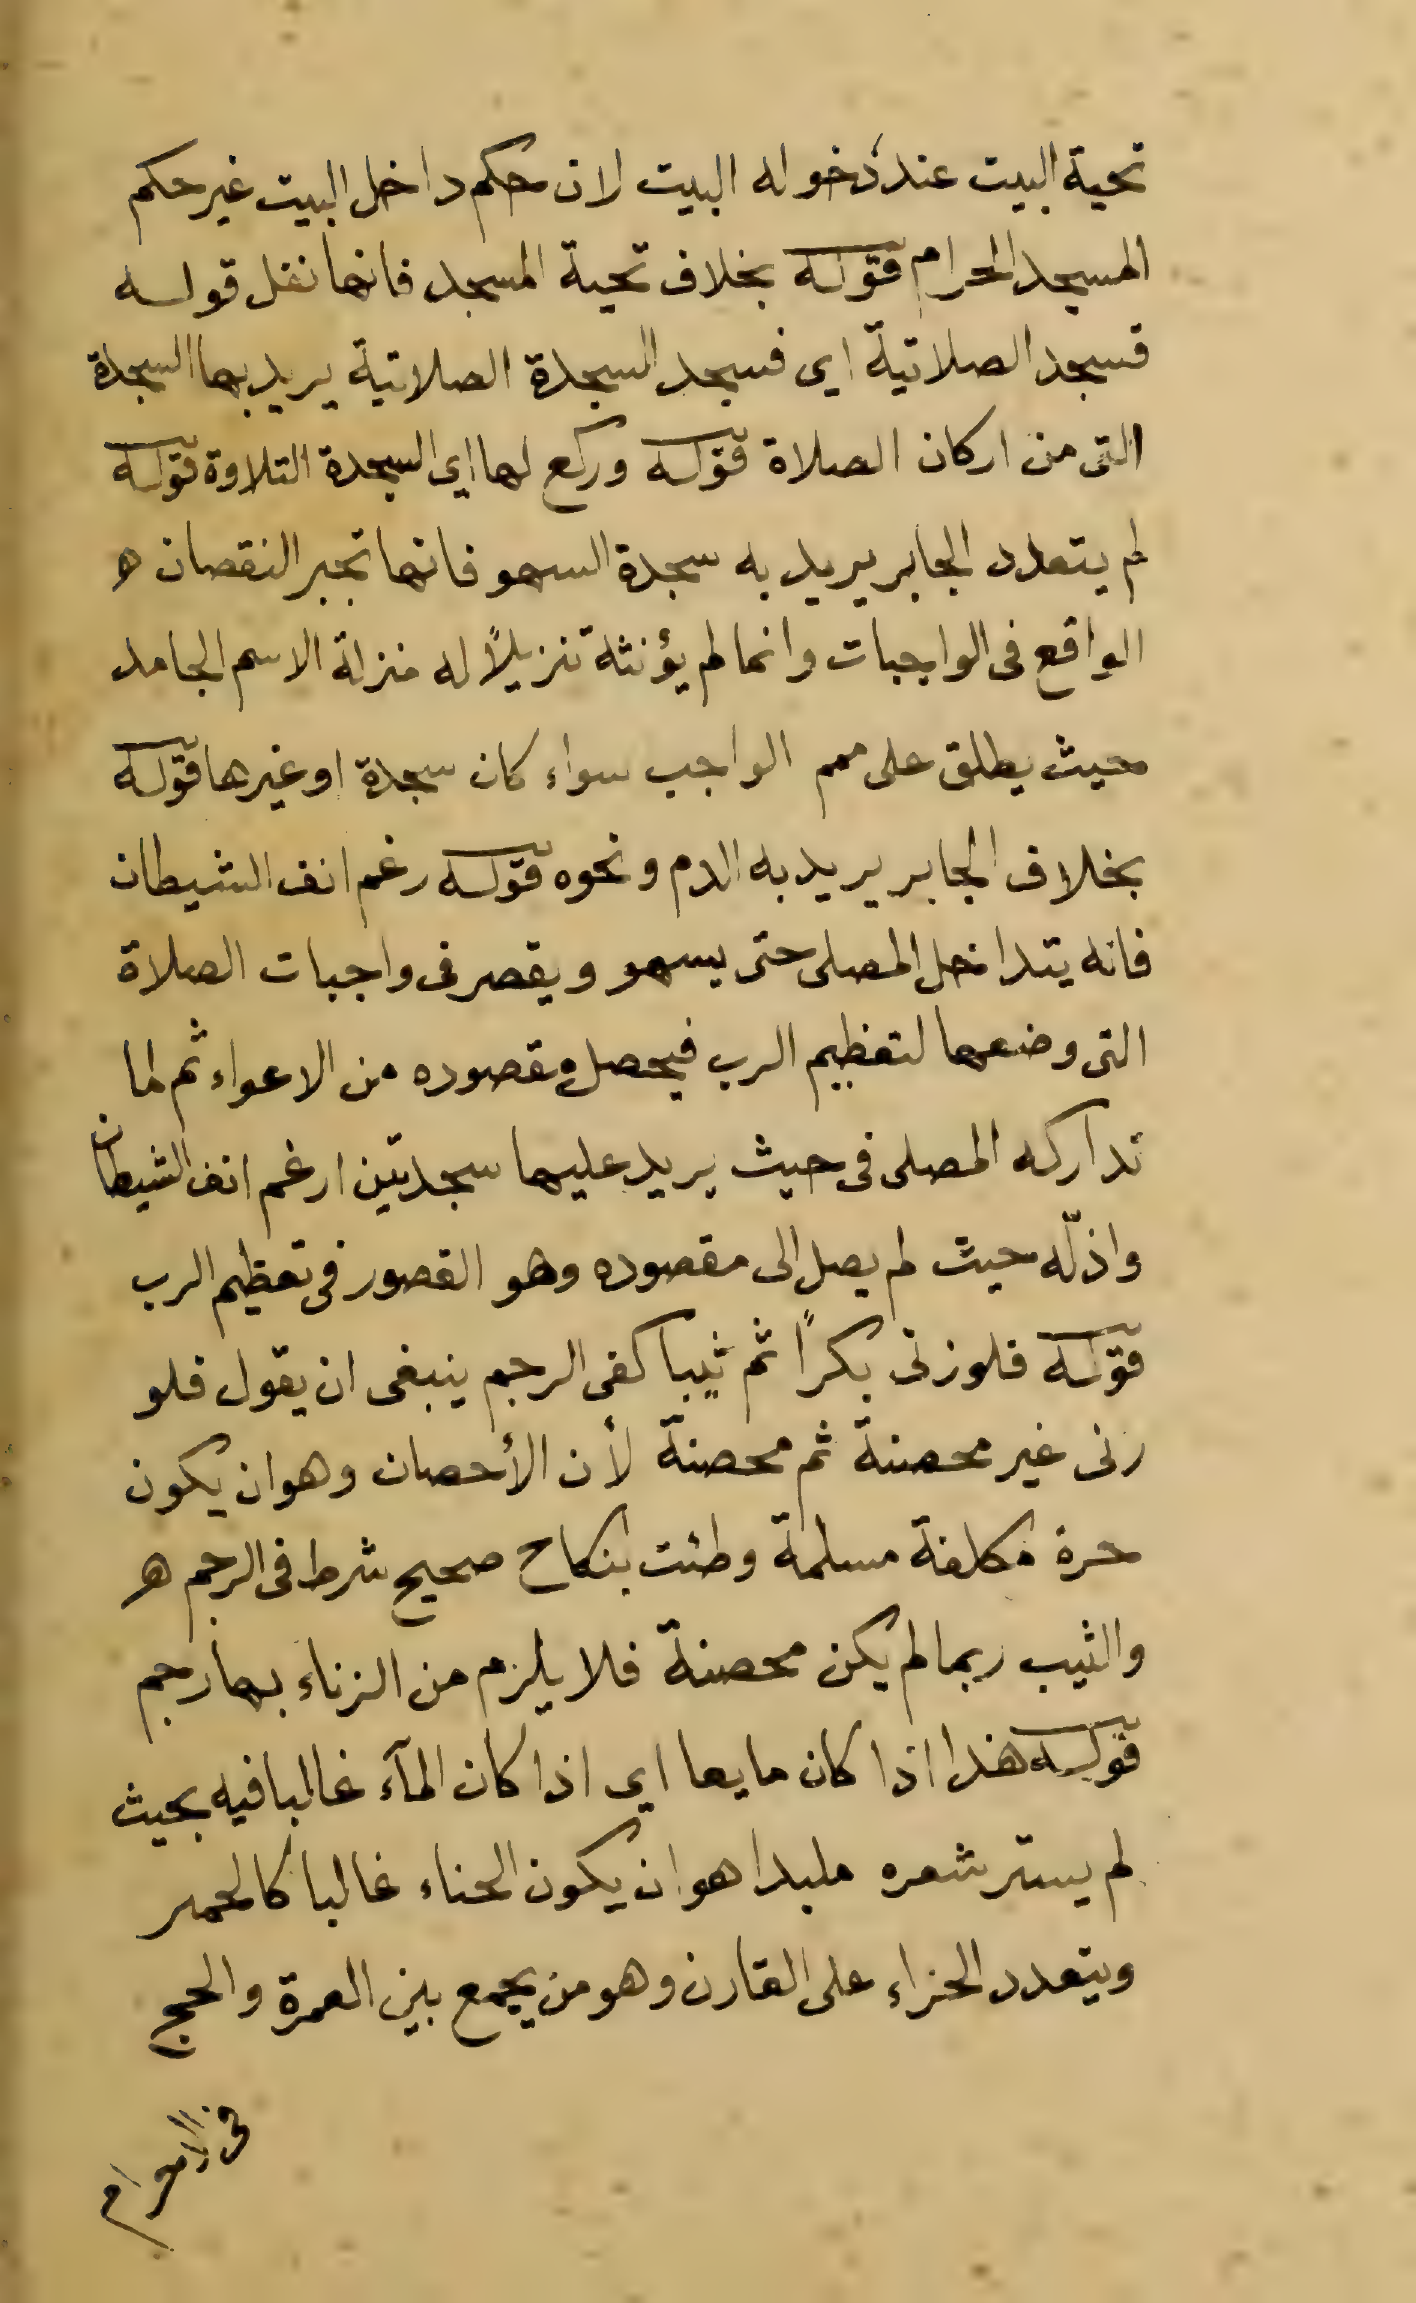 تحية البيت عند دخوله البيت لان حكم داخل البيت غير حكم
المسجد الحرام قوله بخلاف تحية المسجد فانها نفل قوله
فسجد الصلاتية اى فسجد السجدة الصلاتية يريد بها السجدة
التى من اركان الصلاة قوله وركع لها اى السجدة التلاوة قوله
لم يتعدد الجابر يريد به سجدة السهو فانها تجبر النقصان ه
الواقع فى الواجبات وانما لم يؤنثه تنزيلاً له منزلة الاسم الجامد
حيث يطلق على الواجب سواء كان سجدة او غيرها قوله
بخلاف الجابر يريد به الدم ونحوه قوله رغم انف الشيطان
فانه يتداخل المصلى حتى يسهو ويقصر فى واجبات الصلاة
التى وضعها لتعظيم الرب فيحصل مقصوده من الاعواء ثم لما
تداركه المصلى فى حيث يريد عليها سجدتين ارغم انف الشيطان
واذلّه حيث لم يصل الى مقصوده وهو القصور فى تعظيم الرب
قوله فلو زنى بكراً ثم ثيبا كفى الرجم ينبغى ان يقول فلو
زنى غير محصنة ثم محصنة لأن الأحصان وهو ان يكون
حرة مكلفة مسلمة وطئت بنكاح صحيح شرط فى الرجم ه
والثيب ربما لم يكن محصنة فلا يلزم من الزناء بها رجم
قوله هذا اذا كان مايعا اى اذا كان المآء غالبا فيه بحيث
لم يستر شعره ملبدا هو ان يكون الحناء غالبا
ويتعدد الجزاء على القارن وهو من يجمع بين العمرة والحج
فى الاحرام